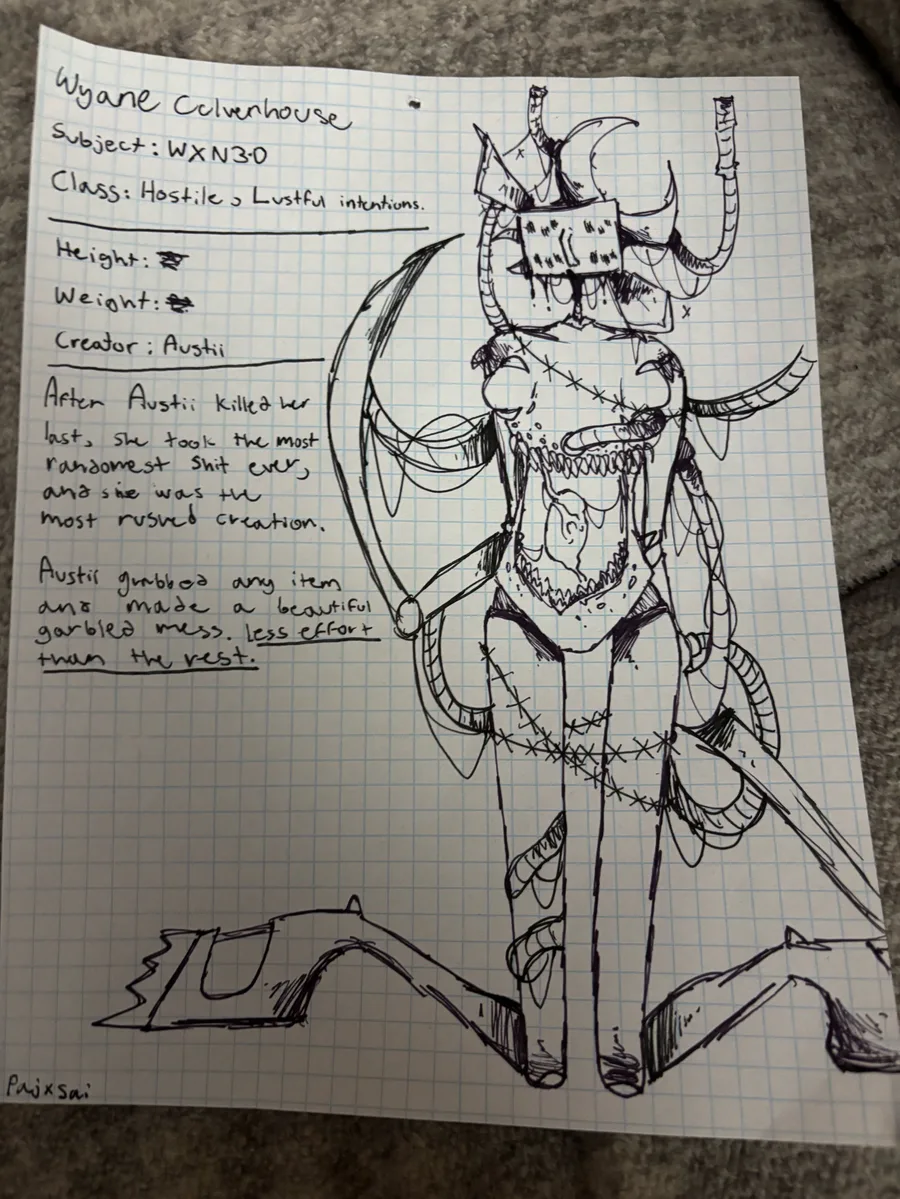 Wyane Culvenhouse
Subject: WXN3-0
Class: Hostile, Lustful intentions.
Height:
Weight:
Creator: Austii
After Austii killed her
last, she took the most
randomest shit ever,
and she was the
most rushed creation.
Austii grabbed any item
and made a beautiful
garbled mess. Less effort
than the rest.
Paixsai